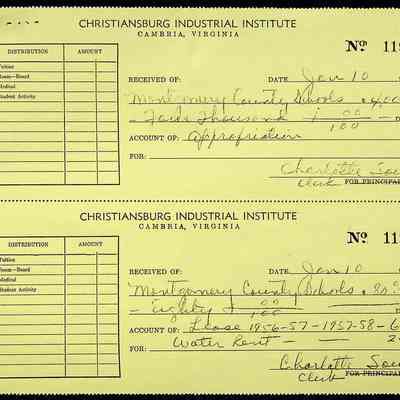 CHRISTIANSBURG INDUSTRIAL INSTITUTE
CAMBRIA, VIRGINIA
Nº 11
DISTRIBUTION AMOUNT
Tuition
Room—Board
Medical
Student Activity
RECEIVED OF: DATE Jan 10
Montgomery County Schools
Thousand & 00/100
ACCOUNT OF: Appropriation
FOR:
Charlotte
Clerk FOR PRINCIPAL
CHRISTIANSBURG INDUSTRIAL INSTITUTE
CAMBRIA, VIRGINIA
Nº 11
DISTRIBUTION AMOUNT
Tuition
Room—Board
Medical
Student Activity
RECEIVED OF: DATE Jan 10
Montgomery County Schools
Eighty & 00/100
ACCOUNT OF: Lease 1956-57-1957-58-
FOR: Water Rent
Charlotte
Clerk FOR PRINCIPAL